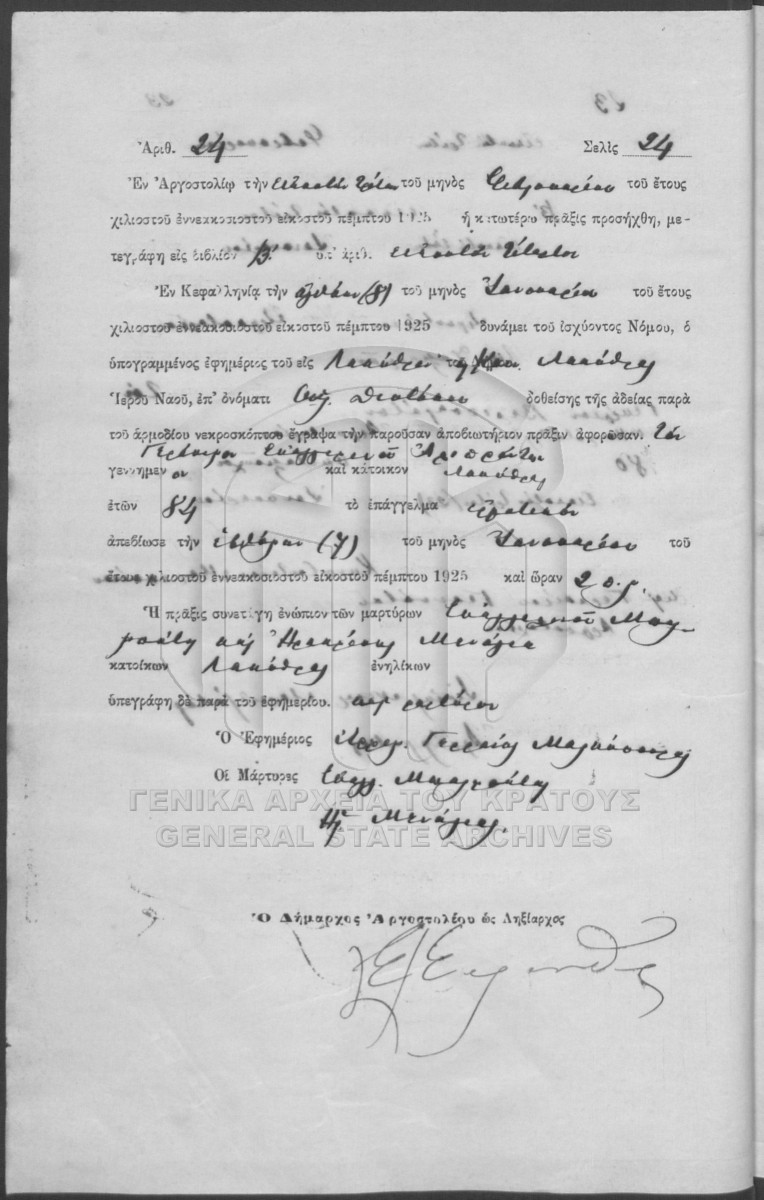 Ἀριθ. 24 Σελὶς 24
Ἐν Ἀργοστολίῳ τὴν εἰκοστὴν τρίτην τοῦ μηνὸς Φεβρουαρίου τοῦ ἔτους
χιλιοστοῦ ἐννεακοσιοστοῦ εἰκοστοῦ πέμπτου 1925 ἡ κατωτέρω πρᾶξις προσήχθη, με-
τεγράφη εἰς βιβλίον Β' ὑπ' ἀριθ. εἰκοστὸν τέταρτον
Ἐν Κεφαλληνίᾳ τὴν ὀγδόην (8) τοῦ μηνὸς Ἰανουαρίου τοῦ ἔτους
χιλιοστοῦ ἐννεακοσιοστοῦ εἰκοστοῦ πέμπτου 1925 δυνάμει τοῦ ἰσχύοντος Νόμου, ὁ
ὑπογραμμένος ἐφημέριος τοῦ εἰς Λακύθραν τοῦ Λακύθρας
Ἱεροῦ Ναοῦ, ἐπ' ὀνόματι δοθείσης τῆς ἀδείας παρὰ
τοῦ ἁρμοδίου νεκροσκόπου ἔγραψα τὴν παροῦσαν ἀποβιωτήριον πρᾶξιν ἀφορῶσαν. τὸν
Γεράσιμον Εὐαγγελινοῦ
γεννημεν ον καὶ κάτοικον Λακύθρας
ἐτῶν 84 τὸ ἐπάγγελμα
ἀπεβίωσε τὴν ἑβδόμην (7) τοῦ μηνὸς Ἰανουαρίου τοῦ
ἔτους χιλιοστοῦ ἐννεακοσιοστοῦ εἰκοστοῦ πέμπτου 1925 καὶ ὥραν 2
Ἡ πρᾶξις συνετάγη ἐνώπιον τῶν μαρτύρων Εὐαγγελινοῦ
καὶ
κατοίκων Λακύθρας ἐνηλίκων
ὑπεγράφη δὲ παρὰ τοῦ ἐφημερίου. καὶ μαρτύρων
Ὁ Ἐφημέριος
Οἱ Μάρτυρες Εὐαγγ.
ΓΕΝΙΚΑ ΑΡΧΕΙΑ ΤΟΥ ΚΡΑΤΟΥΣ
GENERAL STATE ARCHIVES
Ὁ Δήμαρχος Ἀργοστολίου ὡς Ληξίαρχος